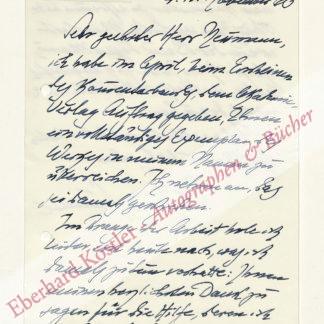 November 60
Sehr geehrter Herr Neumann,
ich habe im April, beim Erscheinen
des dem Akademie-
Verlag Auftrag gegeben, Ihnen
ein vollständiges Exemplar des
Werkes in meinem Namen zu
überreichen. Ich nehme an, daß
sei damals geschehen.
Im Drange der Arbeit hole ich
leider heute nach, was ich
damals zu tun vorhatte: Ihnen
meinen herzlichsten Dank zu
sagen für die Hilfe, deren ich
Eberhard Köstler - Autographen & Bücher